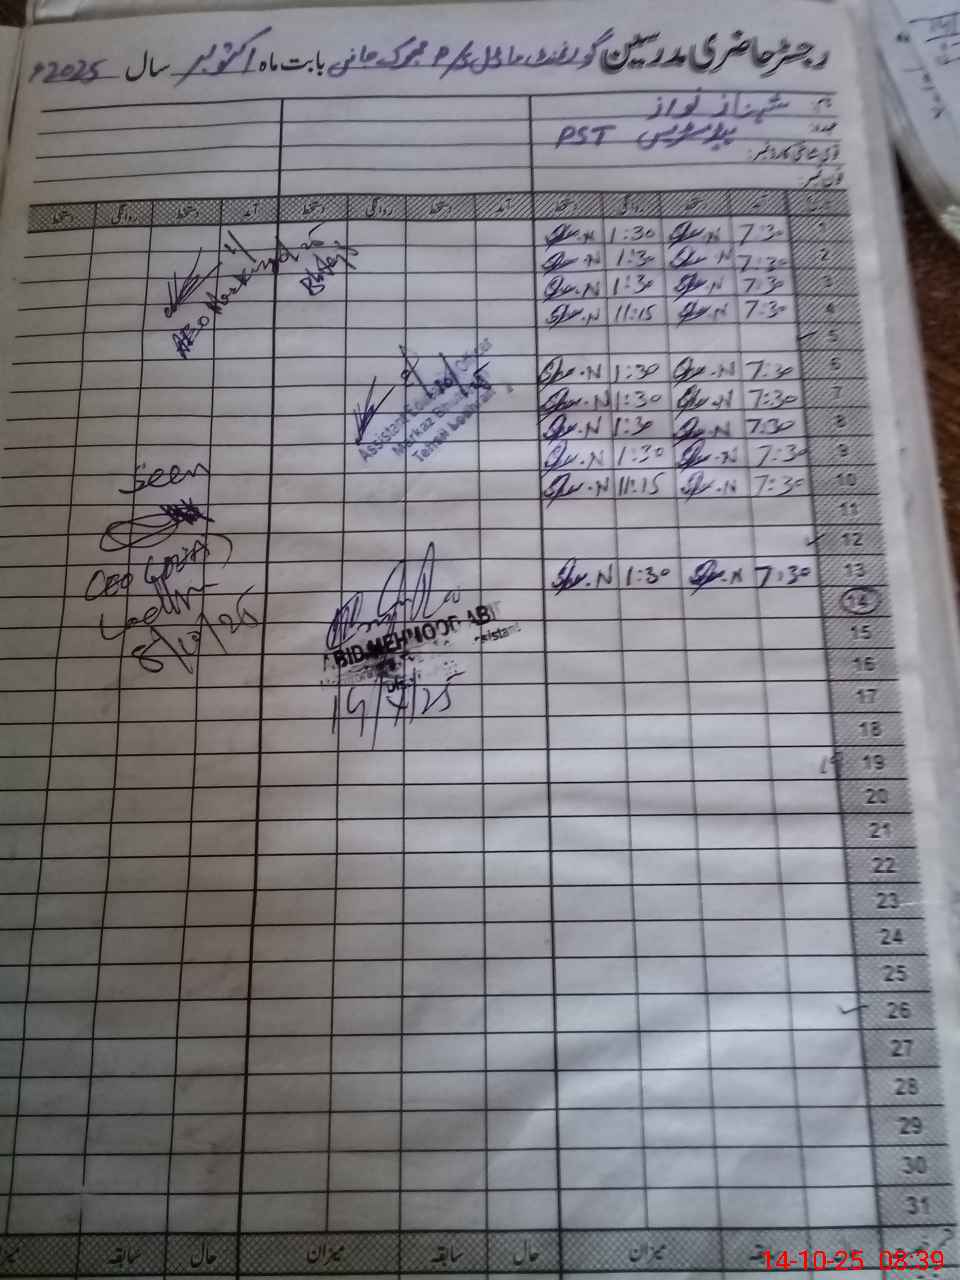 رجسٹر حاضری مدرسین گورنمنٹ ماڈل پ/س جانی بابت ماہ اکتوبر سال 2025ء
نام: شہناز نواز
عہدہ: PST
شناختی کارڈ نمبر:
فون نمبر:
آمد دستخط روانگی دستخط آمد دستخط روانگی دستخط آمد دستخط روانگی دستخط
1 7:30 Sh.N 1:30 Sh.N
2 7:30 Sh.N 1:30 Sh.N
3 7:30 Sh.N 1:30 Sh.N
4 7:30 Sh.N 11:15 Sh.N
5
6 7:30 Sh.N 1:30 Sh.N
7 7:30 Sh.N 1:30 Sh.N
8 7:30 Sh.N 1:30 Sh.N
9 7:30 Sh.N 1:30 Sh.N
10 7:30 Sh.N 11:15 Sh.N
11
12
13 7:30 Sh.N 1:30 Sh.N
14
15
16
17
18
19
20
21
22
23
24
25
26
27
28
29
30
31
AEO Markaz
Assistant Education Officer
Markaz
Tehsil Lodhran
Seen
CEO (DEA)
Lodhran
8/10/25
ABID MEHMOOD ABI
Assistant
14/X/25
حال سابقہ میزان حال سابقہ میزان
14-10-25 08:39